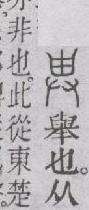 舉也。从
亦非也。此從東楚